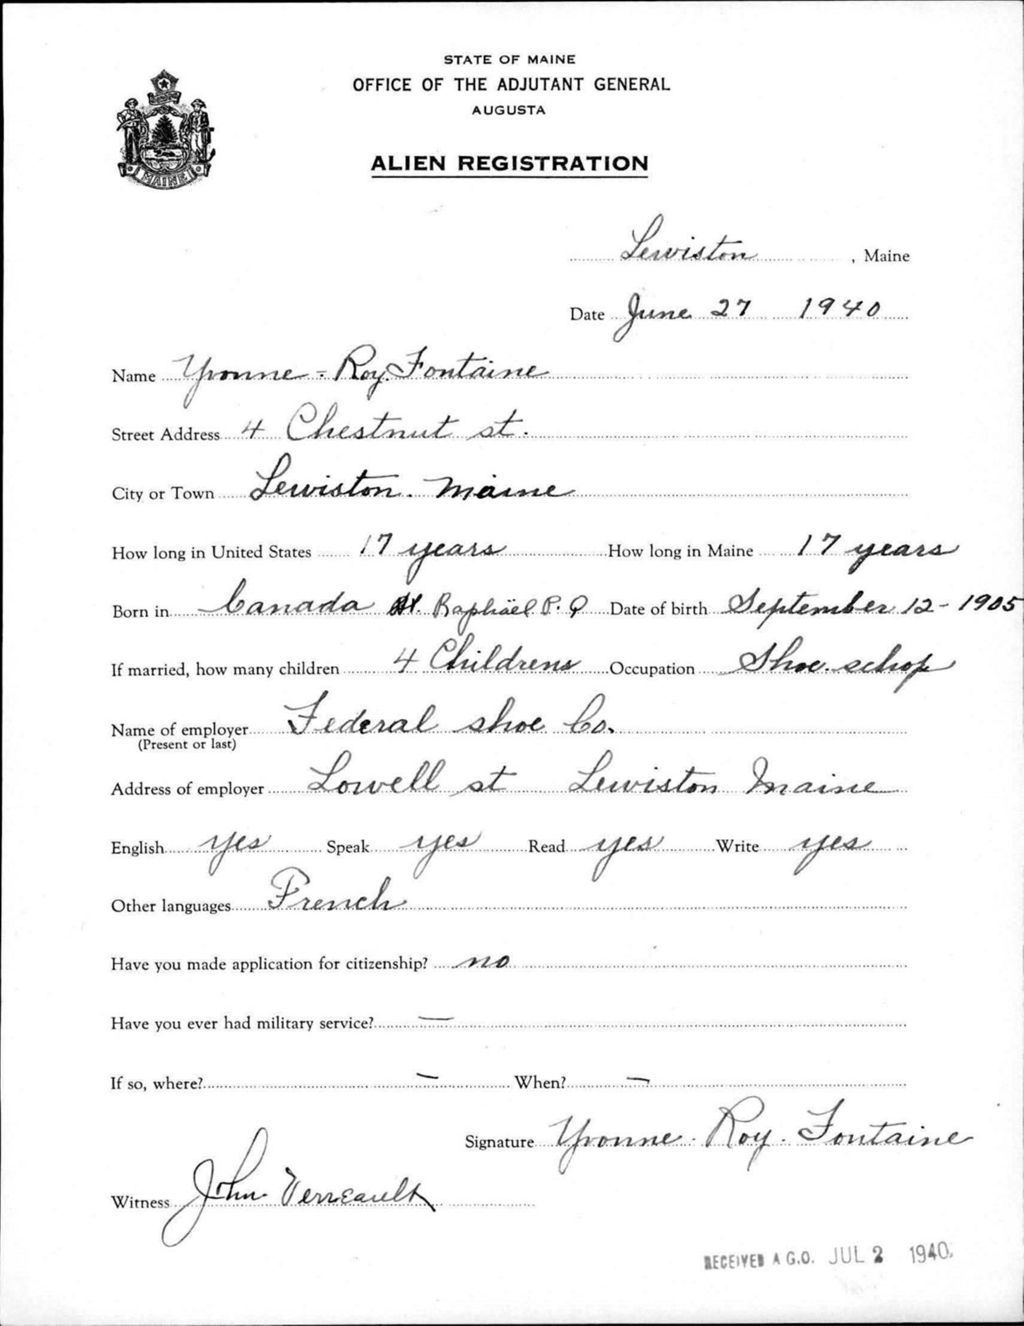 STATE OF MAINE
OFFICE OF THE ADJUTANT GENERAL
AUGUSTA
ALIEN REGISTRATION
MAINE
Lewiston, Maine
Date June 27 1940
Name Yvonne - Roy. Fontaine
Street Address 4 Chestnut st.
City or Town Lewiston. Maine
How long in United States 17 years How long in Maine 17 years
Born in Canada St. Raphäel P. Q Date of birth September 12 - 1905
If married, how many children 4 Childrens Occupation Shoe. schop
Name of employer Federal shoe Co.
(Present or last)
Address of employer Lowell st Lewiston Maine
English yes Speak yes Read yes Write yes
Other languages French
Have you made application for citizenship? no
Have you ever had military service? —
If so, where? — When? —
Signature Yvonne. Roy. Fontaine
Witness John Verreault
RECEIVED A.G.O. JUL 2 1940